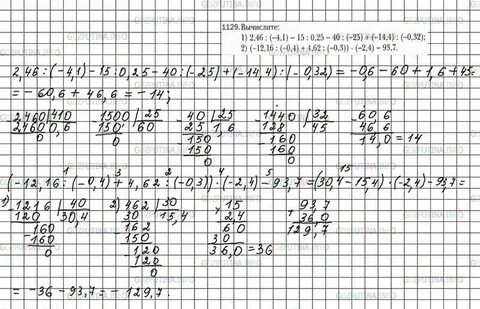 1129. Вычислите:
1) 2,46 : (–4,1) – 15 : 0,25 – 40 : (–25) + (–14,4) : (–0,32);
2) (–12,16 : (–0,4) + 4,62 : (–0,3)) · (–2,4) – 93,7.
2,46:(-4,1)-15:0,25-40:(-25)+(-14,4):(-0,32)=-0,6-60+1,6+45=
=-60,6+46,6=-14;
2460 410 1500 25 40 25 1440 32 60 6
2460 0,6 150 60 25 1,6 128 45 46 6
0 0 150 160 14,0=14
150 160
0 0
1 3 2 4 5 15
(-12,16:(-0,4)+4,62:(-0,3))·(-2,4)-93,7=(30,4-15,4)·(-2,4)-93,7=
1) 1216 40 2) 462 30 15 93,7
120 30,4 30 15,4 2,4 36,0
160 162 60 129,7
160 150 30
0 120 36,0=36
120
0
=-36-93,7=-129,7.
GUZPUTINA.INFO